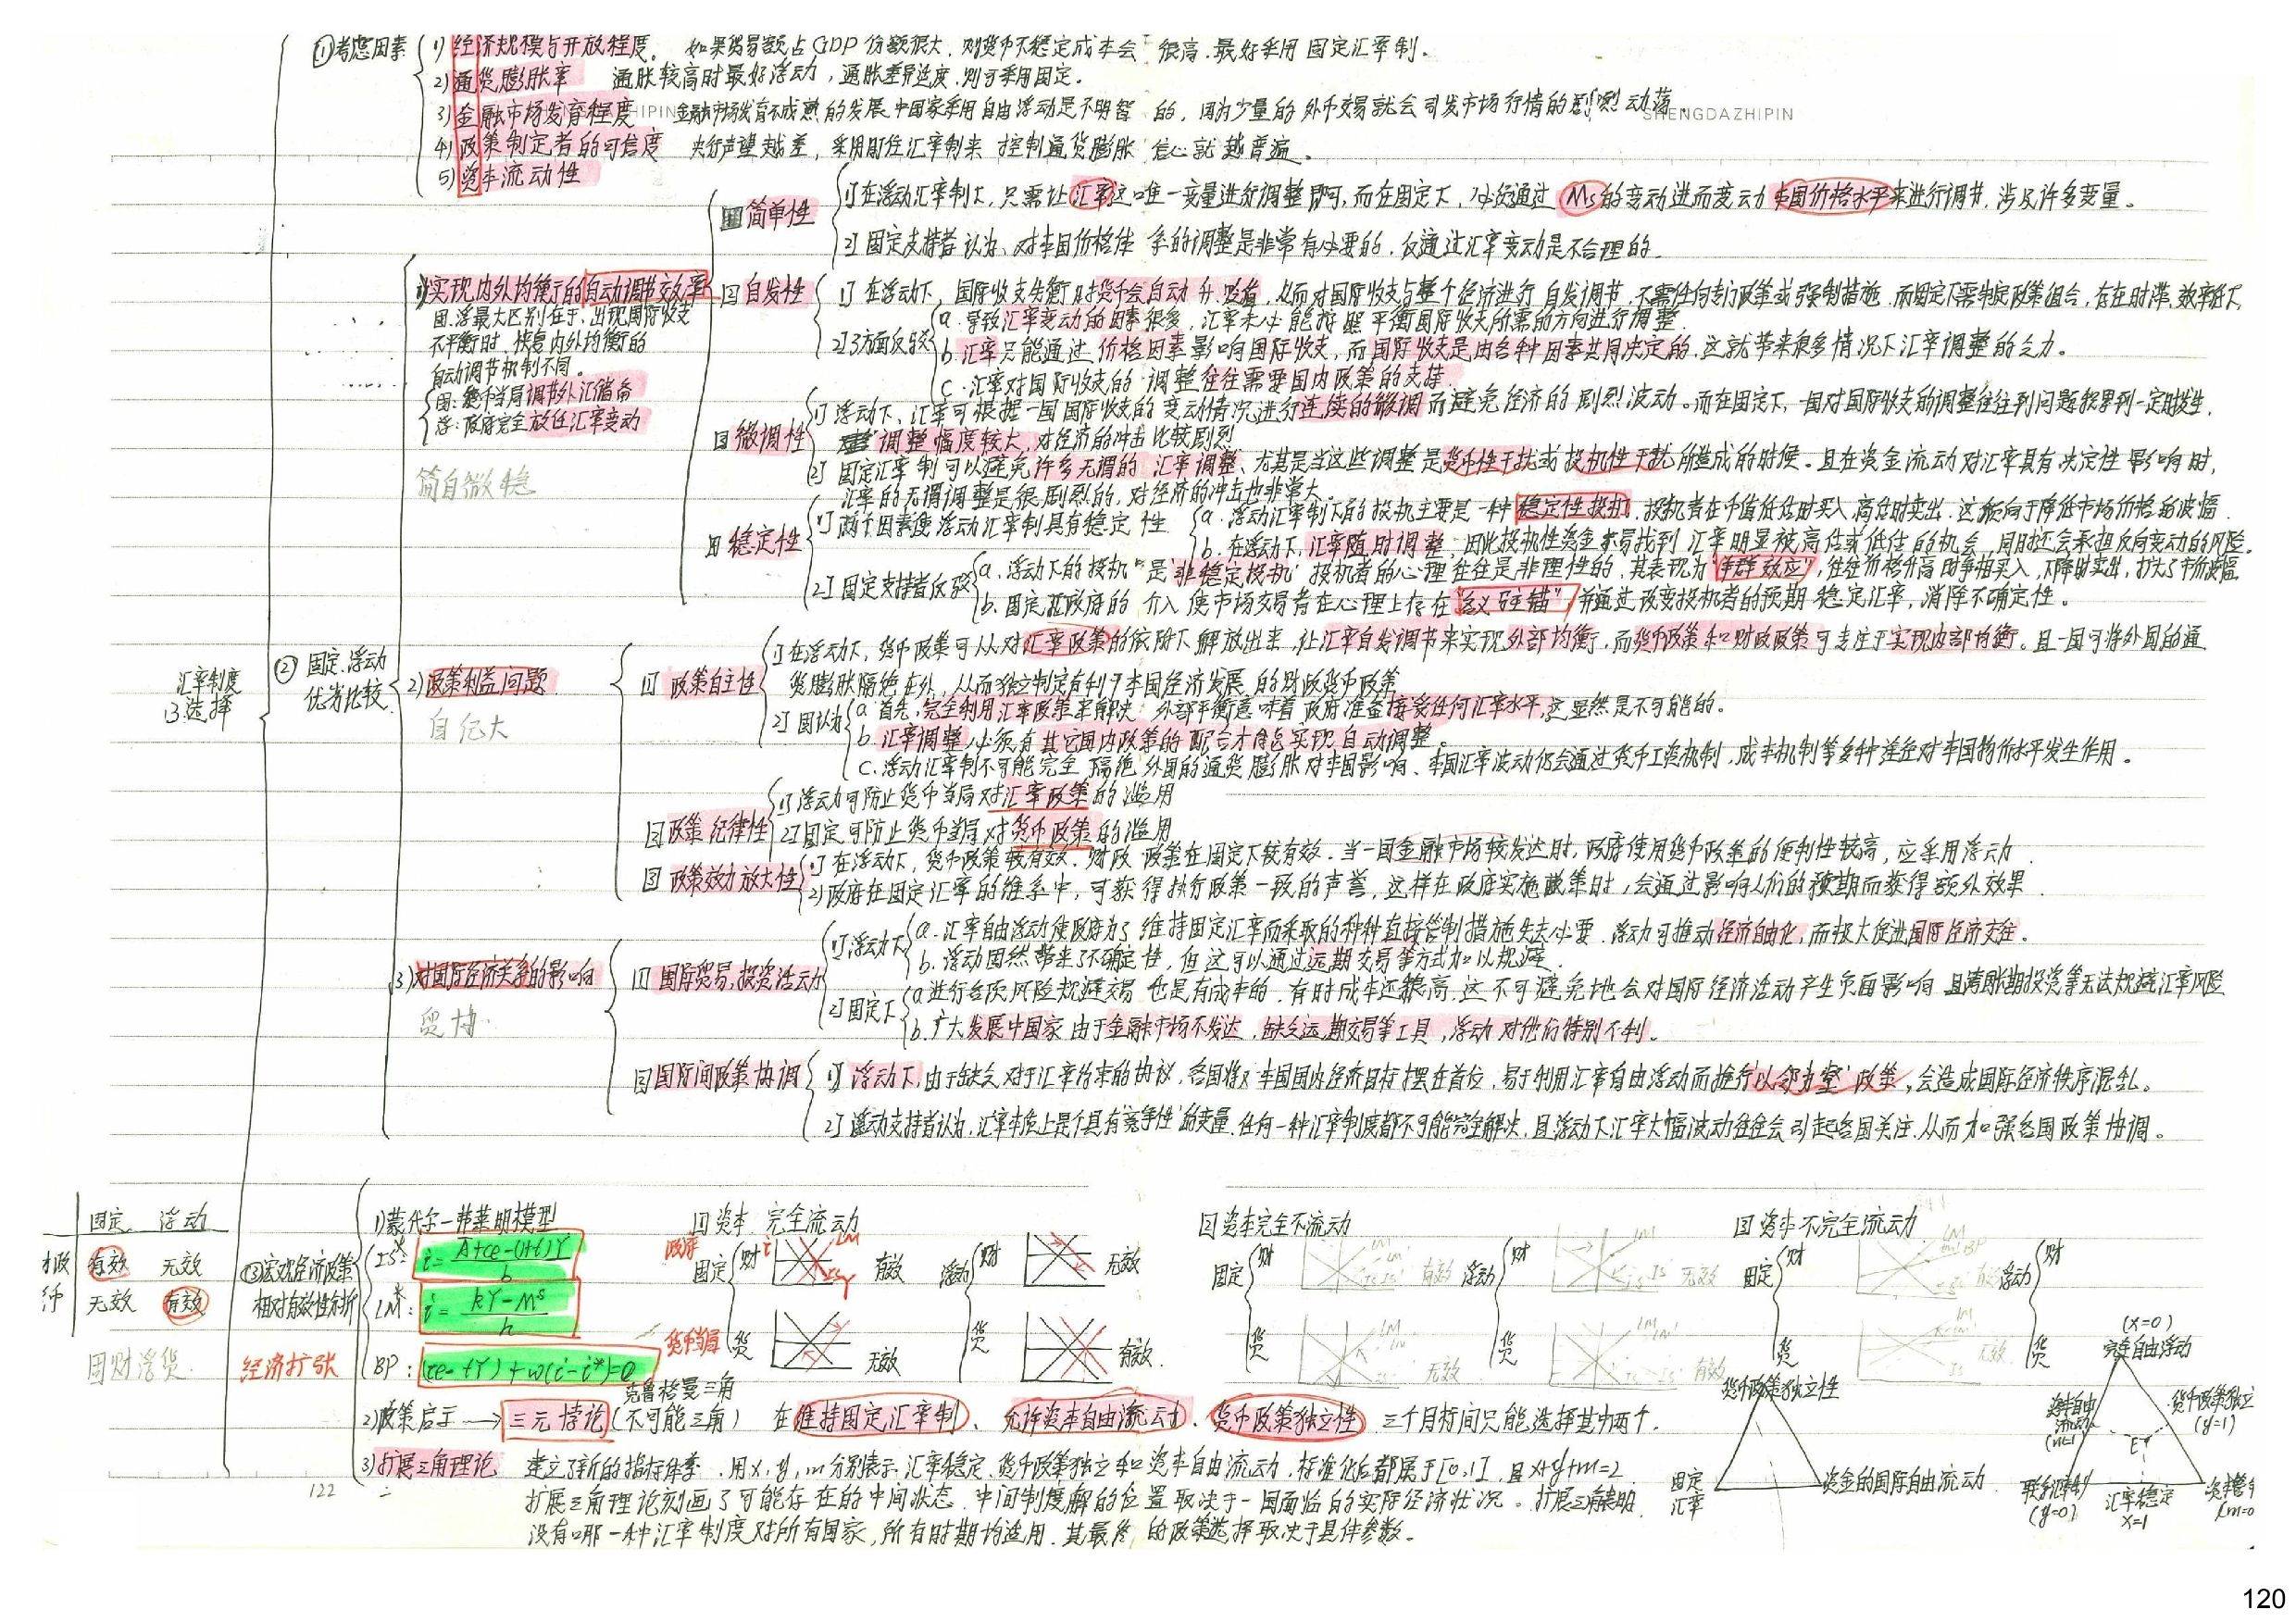 ①考虑因素
1) 经济规模与开放程度。 如果贸易额占GDP份额很大,则货币不稳定成本会很高.最好采用固定汇率制.
2) 通货膨胀率 通胀较高时最好浮动,通胀差异适度.则可采用固定.
3) 金融市场发育程度 金融市场发育不成熟的发展中国家采用自由浮动是不明智的,因为少量的外币交易就会引发市场行情的剧烈动荡.
SHENGDAZHIPIN
4) 政策制定者的可信度 央行声望越差,采用盯住汇率制来控制通货膨胀信心就越普遍。
5) 资本流动性
汇率制度的选择
②固定.浮动优劣比较
1) 实现内外均衡的自动调节效率
固.浮最大区别在于.出现国际收支
不平衡时.恢复内外均衡的
自动调节机制不同。
固:货币当局调节外汇储备
浮:政府完全放任汇率变动
简自微稳
[1]简单性
1] 在浮动汇率制下,只需让汇率这唯一变量进行调整即可,而在固定下,必须通过Ms的变动进而变动本国价格水平来进行调节.涉及许多变量。
2] 固定支持者认为、对本国价格体系的调整是非常有必要的.仅通过汇率变动是不合理的.
[2]自发性
1] 在浮动下,国际收支失衡时货币会自动升、贬值,从而对国际收支与整个经济进行自发调节.不需任何专门政策或强制措施.而固定下需制定政策组合,存在时滞.效率低下
2] 3方面反驳
a.导致汇率变动的因素很多,汇率未必能按照平衡国际收支所需的方向进行调整.
b.汇率只能通过价格因素影响国际收支,而国际收支是由各种因素共同决定的.这就带来很多情况下汇率调整的乏力。
c.汇率对国际收支的调整往往需要国内政策的支撑.
[3]微调性
1] 浮动下、汇率可根据一国国际收支的变动情况进行连续的微调而避免经济的剧烈波动。而在固定下,一国对国际收支的调整往往到问题积累到一定时发生,
调整幅度较大,对经济的冲击比较剧烈
2] 固定汇率制可以避免许多无谓的汇率调整、尤其是当这些调整是货币性干扰或投机性干扰所造成的时候。且在资金流动对汇率具有决定性影响时,
汇率的无谓调整是很剧烈的,对经济的冲击也非常大.
[4]稳定性
1] 两个因素使浮动汇率制具有稳定性
a.浮动汇率制下的投机主要是一种稳定性投机,投机者在币值低估时买入,高估时卖出.这倾向于降低市场价格的波幅.
b.在浮动下,汇率随时调整,因此投机性资金不易找到汇率明显被高估或低估的机会,同时还会承担反向变动的风险.
2] 固定支持者反驳
a.浮动下的投机"是非稳定投机"投机者的心理往往是非理性的.其表现为"羊群效应",往往价格升高时争相买入,下降时卖出,扩大了市价波幅
b.固定下政府的介入使市场交易者在心理上存在"名义驻锚"并通过改变投机者的预期稳定汇率,消除不确定性。
2) 政策利益问题
自纪大
[1]政策自主性
1] 在浮动下,货币政策可从对汇率政策的依附下解放出来,让汇率自发调节来实现外部均衡,而货币政策和财政政策可专注于实现内部均衡。且一国可将外国的通
货膨胀隔绝在外,从而独立制定有利于本国经济发展的财政货币政策
2] 固认为
a 首先,完全利用汇率政策来解决外部平衡意味着政府准备接受任何汇率水平,这显然是不可能的。
b.汇率调整必须有其它国内政策的配合才能实现自动调整。
c.浮动汇率制不可能完全隔绝外国的通货膨胀对本国影响、本国汇率波动仍会通过货币工资机制,成本机制等多种途径对本国物价水平发生作用。
[2]政策纪律性
1] 浮动可防止货币当局对汇率政策的滥用
2] 固定可防止货币当局对货币政策的滥用
[3]政策效力放大性
1] 在浮动下,货币政策较有效.财政政策在固定下较有效.当一国金融市场较发达时,政府使用货币政策的便利性较高,应采用浮动.
2) 政府在固定汇率的维系中,可获得执行政策一致的声誉,这样在政府实施政策时,会通过影响人们的预期而获得额外效果.
3) 对国际经济关系的影响
贸协.
[1]国际贸易,投资活动
1] 浮动下
a.汇率自由浮动使政府为了维持固定汇率而采取的种种直接管制措施失去必要.浮动可推动经济自由化,而极大促进国际经济交往。
b.浮动固然带来了不确定性,但这可以通过远期交易等方式加以规避.
2] 固定下
a 进行各项风险规避交易也是有成本的.有时成本还很高.这不可避免地会对国际经济活动产生负面影响.且跨长期投资等无法规避汇率风险
b.广大发展中国家由于金融市场不发达,缺乏远期交易等工具,浮动对他们特别不利。
[2]国际间政策协调
1] 浮动下,由于缺乏对于汇率约束的协议,各国将本国国内经济目标摆在首位,易于利用汇率自由浮动而推行"以邻为壑"政策,会造成国际经济秩序混乱。
2] 浮动支持者认为,汇率本质上是个具有"竞争性"的变量.任何一种汇率制度都不可能完全解决,且浮动下汇率大幅波动往往会引起各国关注.从而加强各国政策协调。
固定 浮动
财政 有效 无效
货币 无效 有效
固财浮货.
③宏观经济政策相对有效性分析
经济扩张
1) 蒙代尔-弗莱明模型
IS*: i=(A+ce-(1+t)Y)/b
LM*: i=(kY-Ms)/h
BP: (ce-tY)+w(i-i*)=0
[1]资本完全流动
政府
固定 财 LM i IS Y 有效 浮动 财 无效
货币当局
货 无效 货 有效.
[2]资本完全不流动
固定 财 LM LM' IS IS' 有效 浮动 财 LM IS IS' 无效
货 LM LM' IS 无效 货 LM LM' IS IS' 有效
[3]资本不完全流动
固定 财 LM LM' BP IS 有效 浮动 财
货 LM LM' IS 无效 货
克鲁格曼三角
2) 政策启示→三元悖论(不可能三角) 在维持固定汇率制、允许资本自由流动、货币政策独立性三个目标间只能选择其中两个.
3) 扩展三角理论 建立了新的指标体系.用x,y,m分别表示汇率稳定、货币政策独立和资本自由流动.标准化后都属于[0,1],且x+y+m=2
扩展三角理论刻画了可能存在的中间状态.中间制度解的位置取决于一国面临的实际经济状况。扩展三角表明,
没有哪一种汇率制度对所有国家,所有时期均适用.其最终的政策选择取决于具体参数。
货币政策独立性
固定汇率
资金的国际自由流动
(x=0)
完全自由浮动
资本自由流动 (m=1)
货币政策独立 (y=1)
E
(y=0)
汇率稳定 x=1
(m=0
122
120